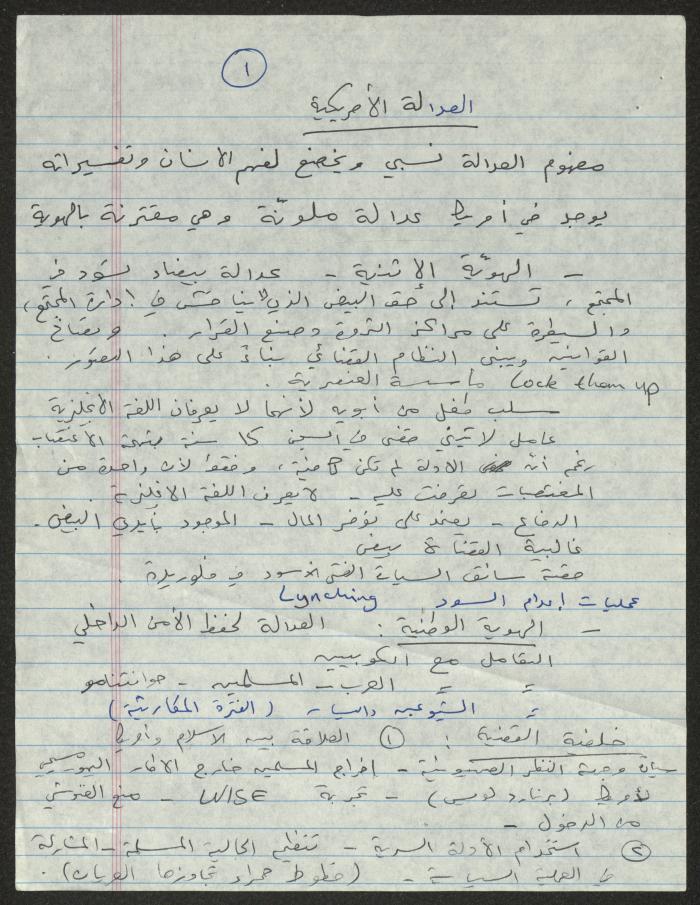 ١
العدالة الأمريكية
مفهوم العدالة نسبي ويخضع لفهم الانسان وتفسيراته
يوجد في أمريكا عدالة ملونّة وهي مقترنة بالهوية
- الهويّة الاثنية - عدالة بيضاء تسود في
المجتمع، تستند إلى حق البيض الذي في إدارة المجتمع،
والسيطرة على مراكز الثروة وصنع القرار. وتصاغ
القوانين ويبنى النظام القضائي بناءً على هذا التصور.
Lock them up مأسسة العنصرية.
سلب طفل من أبويه لأنهما لا يعرفان اللغة الانجليزية
عامل لاتيني قضى في السجن ١٥ سنة بتهمة الاغتصاب
رغم أن الادلة لم تكن كافية، وفقط لأن واحدة من
المغتصبات تعرفت عليه - لا يعرف اللغة الانجليزية.
الدفاع - يعتمد على توفر المال - الموجود بأيدي البيض.
غالبية القضاة بيض
قصة سائق السيارة الفتى الاسود في فلوريدة.
عمليات إعدام السود Lynching
- الهوية الوطنية: العدالة لحفظ الأمن الداخلي
التعامل مع الكوبيين
〃 〃 العرب - المسلمين - جوانتنامو
〃 الشيوعيين (الفترة المكارثية)
خلفية القضية: ① العلاقة بين الاسلام وأمريكا
بيان وجهة النظر الصهيونية - إخراج المسلمين خارج الاطار اليهوسيحي
لأمريكا (برنارد لويس) - تجربة WISE - منع الغنوشي
من الدخول -
② استخدام الأدلة السرية - تنظيم الجالية المسلمة - المشاركة
في العملية السياسية - (خطوط حمراء تجاوزها العريان).